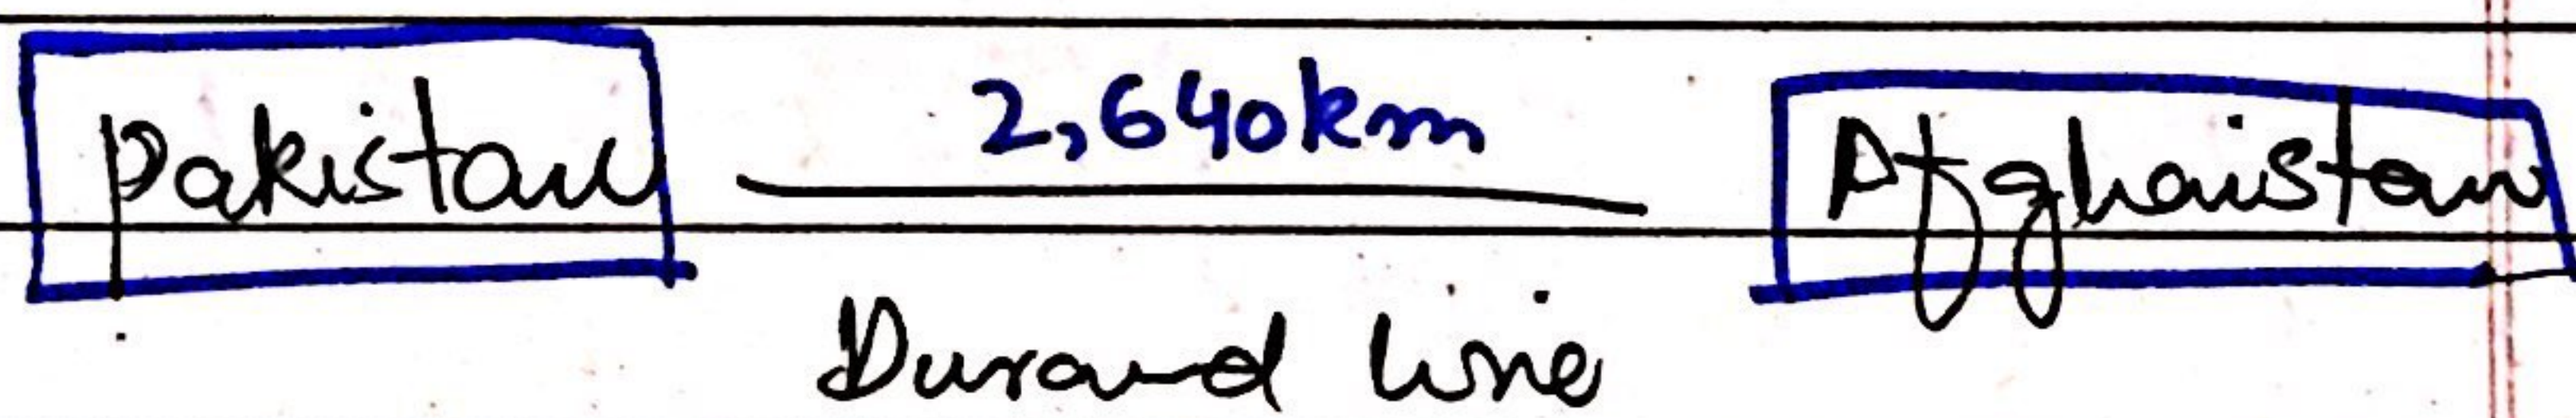 Pakistan 2,640km Afghaistan
Durand line